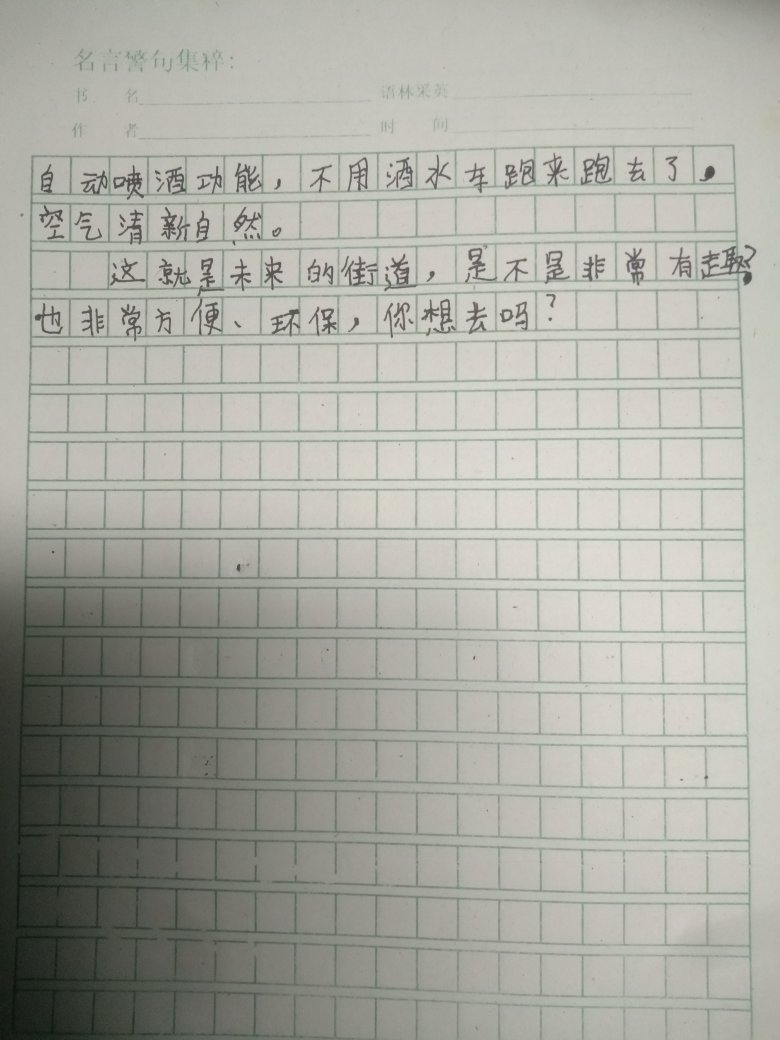 名言警句集粹:
书 名 语林采英
作 者 时 间
自动喷酒功能，不用酒水车跑来跑去了，
空气清新自然。
这就是未来的街道，是不是非常有趣？
也非常方便、环保，你想去吗？